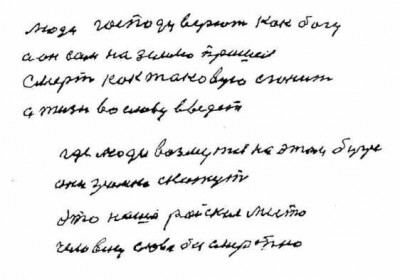 люди господу верют как богу
а он сам на землю пришол
смерт как таковую згонит
а жизн во славу введет

где люди возмутся на этом бугре
они громко скажут
это наша райския место
человеку слова бесмертно